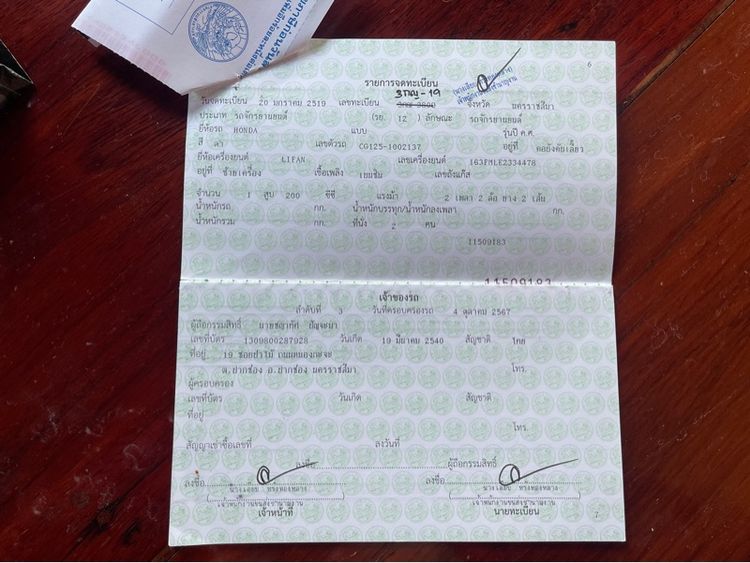 6
รายการจดทะเบียน
เจ้าพนักงานขนส่งชำนาญงาน
วันจดทะเบียน 20 มกราคม 2519 เลขทะเบียน 3กญ-19 จังหวัด นครราชสีมา
ประเภท รถจักรยานยนต์ (รย. 12 ) ลักษณะ รถจักรยานยนต์
ยี่ห้อรถ HONDA แบบ รุ่นปี ค.ศ.
สี ดำ เลขตัวรถ CG125-1002137 อยู่ที่ คอยังคับเลี้ยว
ยี่ห้อเครื่องยนต์ LIFAN เลขเครื่องยนต์ 163FMLE2334478
อยู่ที่ ซ้ายเครื่อง เชื้อเพลิง เบนซิน เลขถังแก๊ส
จำนวน 1 สูบ 200 ซีซี แรงม้า 2 เพลา 2 ล้อ ยาง 2 เส้น
น้ำหนักรถ กก. น้ำหนักบรรทุก/น้ำหนักลงเพลา กก.
น้ำหนักรวม กก. ที่นั่ง 2 คน
11509183
11509183
เจ้าของรถ
ลำดับที่ 3 วันที่ครอบครองรถ 4 ตุลาคม 2567
ผู้ถือกรรมสิทธิ์ นายชญาภัศ
เลขที่บัตร 1309800287928 วันเกิด 19 มีนาคม 2540 สัญชาติ ไทย
ที่อยู่ 19 ซอยป่าไม้ ถนนหนองกะจะ
ต.ปากช่อง อ.ปากช่อง นครราชสีมา โทร.
ผู้ครอบครอง
เลขที่บัตร วันเกิด สัญชาติ
ที่อยู่
โทร.
สัญญาเช่าซื้อเลขที่ ลงวันที่
ลงชื่อ ผู้ถือกรรมสิทธิ์
ลงชื่อ ลงชื่อ
เจ้าพนักงานขนส่งชำนาญงาน เจ้าพนักงานขนส่งชำนาญงาน
เจ้าหน้าที่ นายทะเบียน
7